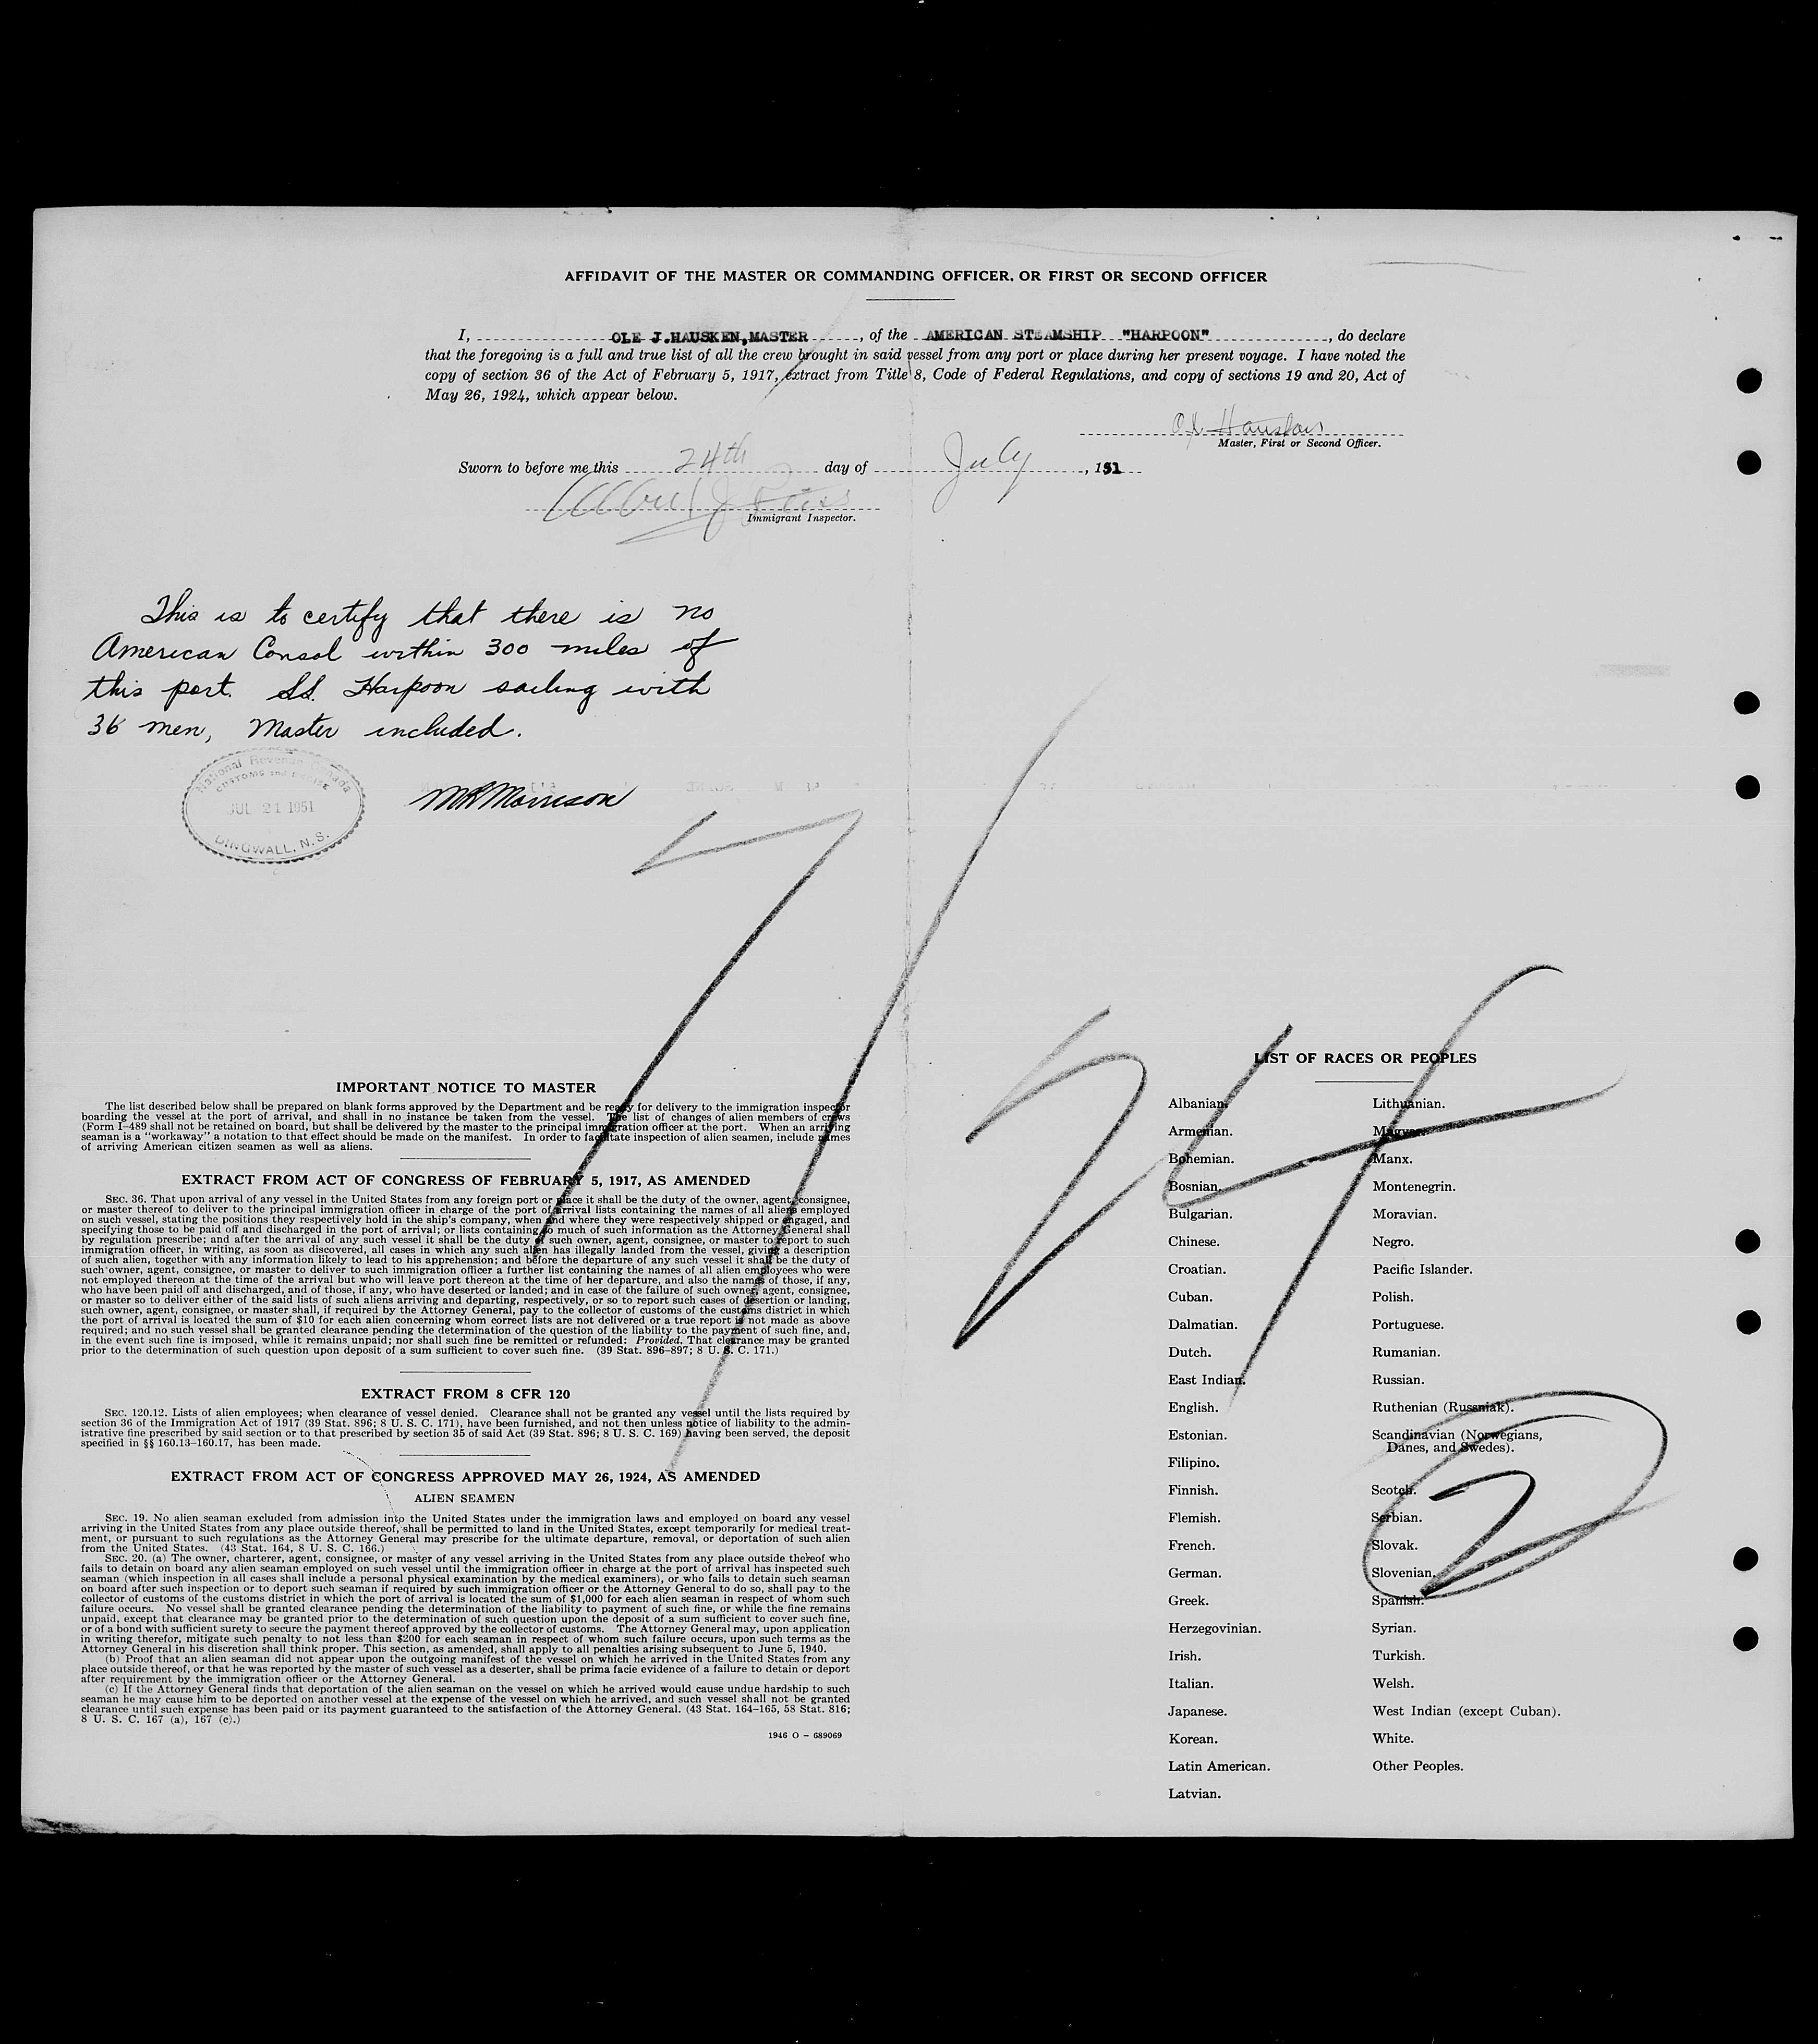 AFFIDAVIT OF THE MASTER OR COMMANDING OFFICER, OR FIRST OR SECOND OFFICER
I, OLE J.HAUSKEN,MASTER, of the AMERICAN STEAMSHIP "HARPOON", do declare
that the foregoing is a full and true list of all the crew brought in said vessel from any port or place during her present voyage. I have noted the
copy of section 36 of the Act of February 5, 1917, extract from Title 8, Code of Federal Regulations, and copy of sections 19 and 20, Act of
May 26, 1924, which appear below.
Master, First or Second Officer.
Sworn to before me this 24th day of July, 151
Immigrant Inspector.
This is to certify that there is no
American Consol within 300 miles of
this port. SS. Harpoon sailing with
36 men, Master included.
National Revenue Canada
CUSTOMS AND EXCISE
JUL 21 1951
DINGWALL, N.S.
MRMorrison
7/24
2
IMPORTANT NOTICE TO MASTER
The list described below shall be prepared on blank forms approved by the Department and be ready for delivery to the immigration inspector
boarding the vessel at the port of arrival, and shall in no instance be taken from the vessel. The list of changes of alien members of crews
(Form I–489 shall not be retained on board, but shall be delivered by the master to the principal immigration officer at the port. When an arriving
seaman is a "workaway" a notation to that effect should be made on the manifest. In order to facilitate inspection of alien seamen, include names
of arriving American citizen seamen as well as aliens.
EXTRACT FROM ACT OF CONGRESS OF FEBRUARY 5, 1917, AS AMENDED
SEC. 36. That upon arrival of any vessel in the United States from any foreign port or place it shall be the duty of the owner, agent, consignee,
or master thereof to deliver to the principal immigration officer in charge of the port of arrival lists containing the names of all aliens employed
on such vessel, stating the positions they respectively hold in the ship's company, when and where they were respectively shipped or engaged, and
specifying those to be paid off and discharged in the port of arrival; or lists containing so much of such information as the Attorney General shall
by regulation prescribe; and after the arrival of any such vessel it shall be the duty of such owner, agent, consignee, or master to report to such
immigration officer, in writing, as soon as discovered, all cases in which any such alien has illegally landed from the vessel, giving a description
of such alien, together with any information likely to lead to his apprehension; and before the departure of any such vessel it shall be the duty of
such owner, agent, consignee, or master to deliver to such immigration officer a further list containing the names of all alien employees who were
not employed thereon at the time of the arrival but who will leave port thereon at the time of her departure, and also the names of those, if any,
who have been paid off and discharged, and of those, if any, who have deserted or landed; and in case of the failure of such owner, agent, consignee,
or master so to deliver either of the said lists of such aliens arriving and departing, respectively, or so to report such cases of desertion or landing,
such owner, agent, consignee, or master shall, if required by the Attorney General, pay to the collector of customs of the customs district in which
the port of arrival is located the sum of $10 for each alien concerning whom correct lists are not delivered or a true report is not made as above
required; and no such vessel shall be granted clearance pending the determination of the question of the liability to the payment of such fine, and,
in the event such fine is imposed, while it remains unpaid; nor shall such fine be remitted or refunded: Provided, That clearance may be granted
prior to the determination of such question upon deposit of a sum sufficient to cover such fine. (39 Stat. 896–897; 8 U. S. C. 171.)
EXTRACT FROM 8 CFR 120
SEC. 120.12. Lists of alien employees; when clearance of vessel denied. Clearance shall not be granted any vessel until the lists required by
section 36 of the Immigration Act of 1917 (39 Stat. 896; 8 U. S. C. 171), have been furnished, and not then unless notice of liability to the admin-
istrative fine prescribed by said section or to that prescribed by section 35 of said Act (39 Stat. 896; 8 U. S. C. 169) having been served, the deposit
specified in §§ 160.13–160.17, has been made.
EXTRACT FROM ACT OF CONGRESS APPROVED MAY 26, 1924, AS AMENDED
ALIEN SEAMEN
SEC. 19. No alien seaman excluded from admission into the United States under the immigration laws and employed on board any vessel
arriving in the United States from any place outside thereof, shall be permitted to land in the United States, except temporarily for medical treat-
ment, or pursuant to such regulations as the Attorney General may prescribe for the ultimate departure, removal, or deportation of such alien
from the United States. (43 Stat. 164, 8 U. S. C. 166.)
SEC. 20. (a) The owner, charterer, agent, consignee, or master of any vessel arriving in the United States from any place outside thereof who
fails to detain on board any alien seaman employed on such vessel until the immigration officer in charge at the port of arrival has inspected such
seaman (which inspection in all cases shall include a personal physical examination by the medical examiners), or who fails to detain such seaman
on board after such inspection or to deport such seaman if required by such immigration officer or the Attorney General to do so, shall pay to the
collector of customs of the customs district in which the port of arrival is located the sum of $1,000 for each alien seaman in respect of whom such
failure occurs. No vessel shall be granted clearance pending the determination of the liability to payment of such fine, or while the fine remains
unpaid, except that clearance may be granted prior to the determination of such question upon the deposit of a sum sufficient to cover such fine,
or of a bond with sufficient surety to secure the payment thereof approved by the collector of customs. The Attorney General may, upon application
in writing therefor, mitigate such penalty to not less than $200 for each seaman in respect of whom such failure occurs, upon such terms as the
Attorney General in his discretion shall think proper. This section, as amended, shall apply to all penalties arising subsequent to June 5, 1940.
(b) Proof that an alien seaman did not appear upon the outgoing manifest of the vessel on which he arrived in the United States from any
place outside thereof, or that he was reported by the master of such vessel as a deserter, shall be prima facie evidence of a failure to detain or deport
after requirement by the immigration officer or the Attorney General.
(c) If the Attorney General finds that deportation of the alien seaman on the vessel on which he arrived would cause undue hardship to such
seaman he may cause him to be deported on another vessel at the expense of the vessel on which he arrived, and such vessel shall not be granted
clearance until such expense has been paid or its payment guaranteed to the satisfaction of the Attorney General. (43 Stat. 164–165, 58 Stat. 816;
8 U. S. C. 167 (a), 167 (c).)
1946 O – 689069
LIST OF RACES OR PEOPLES
Albanian.
Armenian.
Bohemian.
Bosnian.
Bulgarian.
Chinese.
Croatian.
Cuban.
Dalmatian.
Dutch.
East Indian.
English.
Estonian.
Filipino.
Finnish.
Flemish.
French.
German.
Greek.
Herzegovinian.
Irish.
Italian.
Japanese.
Korean.
Latin American.
Latvian.
Lithuanian.
Magyar.
Manx.
Montenegrin.
Moravian.
Negro.
Pacific Islander.
Polish.
Portuguese.
Rumanian.
Russian.
Ruthenian (Russniak).
Scandinavian (Norwegians,
Danes, and Swedes).
Scotch.
Serbian.
Slovak.
Slovenian.
Spanish.
Syrian.
Turkish.
Welsh.
West Indian (except Cuban).
White.
Other Peoples.